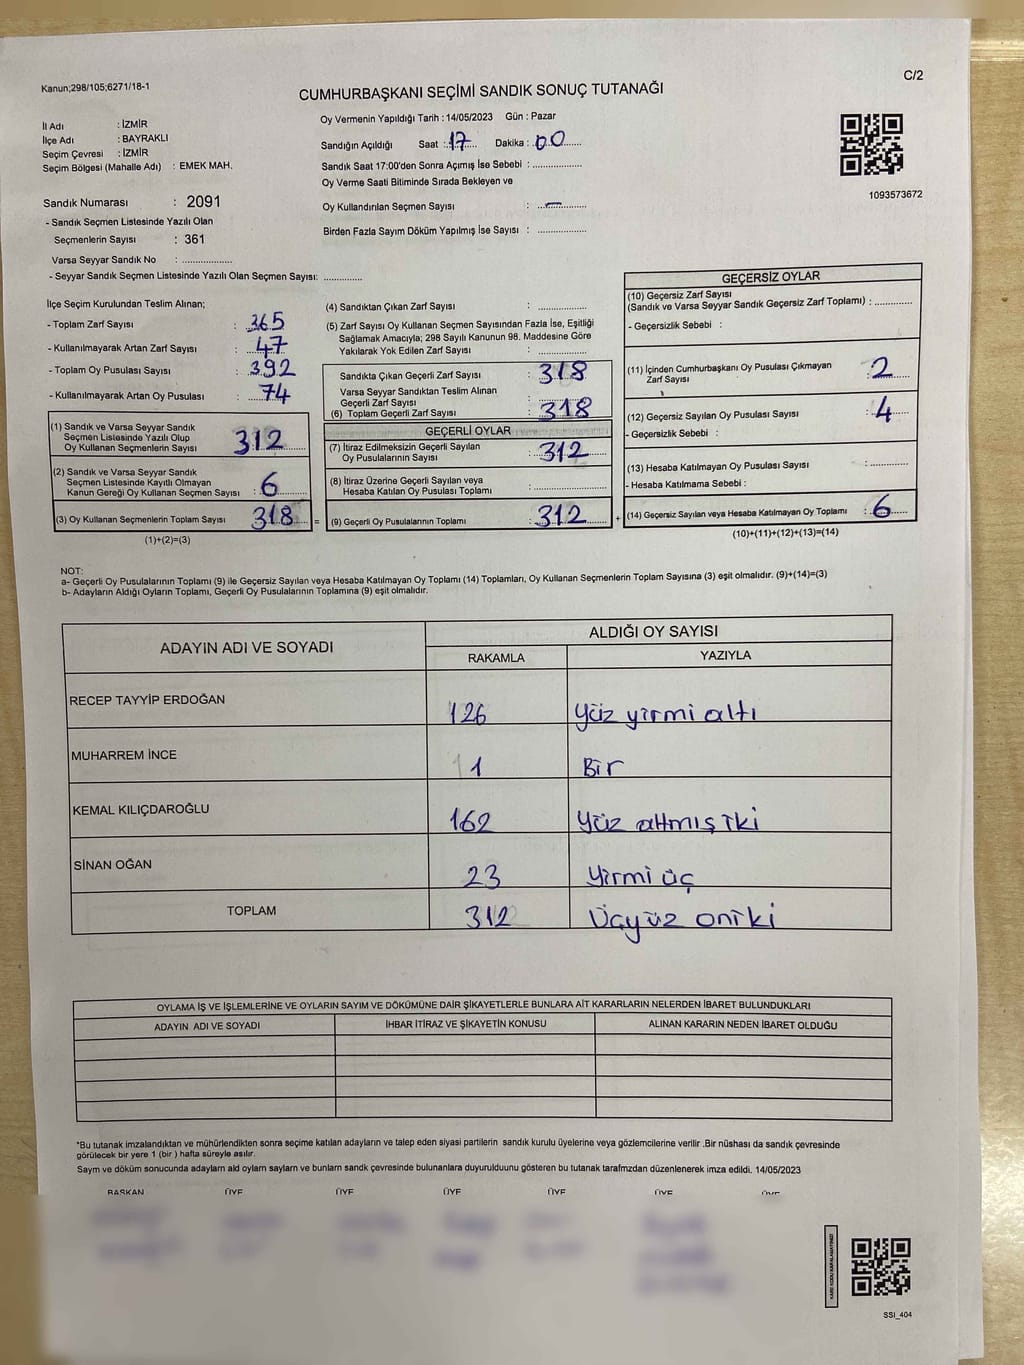 Kanun;298/105;6271/18-1
C/2
CUMHURBAŞKANI SEÇİMİ SANDIK SONUÇ TUTANAĞI
İl Adı : İZMİR
İlçe Adı : BAYRAKLI
Seçim Çevresi : İZMİR
Seçim Bölgesi (Mahalle Adı) : EMEK MAH.
Sandık Numarası : 2091
- Sandık Seçmen Listesinde Yazılı Olan
Seçmenlerin Sayısı : 361
Varsa Seyyar Sandık No : ..................
- Seyyar Sandık Seçmen Listesinde Yazılı Olan Seçmen Sayısı: .............
Oy Vermenin Yapıldığı Tarih : 14/05/2023 Gün : Pazar
Sandığın Açıldığı Saat : 17 Dakika : 00
Sandık Saat 17:00'den Sonra Açımış İse Sebebi : ..................
Oy Verme Saati Bitiminde Sırada Bekleyen ve
Oy Kullandırılan Seçmen Sayısı : —
Birden Fazla Sayım Döküm Yapılmış İse Sayısı : ..................
1093573672
İlçe Seçim Kurulundan Teslim Alınan;
- Toplam Zarf Sayısı : 365
- Kullanılmayarak Artan Zarf Sayısı : 47
- Toplam Oy Pusulası Sayısı : 392
- Kullanılmayarak Artan Oy Pusulası : 74
(1) Sandık ve Varsa Seyyar Sandık
Seçmen Listesinde Yazılı Olup
Oy Kullanan Seçmenlerin Sayısı 312
(2) Sandık ve Varsa Seyyar Sandık
Seçmen Listesinde Kayıtlı Olmayan
Kanun Gereği Oy Kullanan Seçmen Sayısı : 6
(3) Oy Kullanan Seçmenlerin Toplam Sayısı 318 =
(1)+(2)=(3)
(4) Sandıktan Çıkan Zarf Sayısı : ..................
(5) Zarf Sayısı Oy Kullanan Seçmen Sayısından Fazla İse, Eşitliği
Sağlamak Amacıyla; 298 Sayılı Kanunun 98. Maddesine Göre
Yakılarak Yok Edilen Zarf Sayısı : ..................
Sandıkta Çıkan Geçerli Zarf Sayısı : 318
Varsa Seyyar Sandıktan Teslim Alınan
Geçerli Zarf Sayısı : ..................
(6) Toplam Geçerli Zarf Sayısı : 318
GEÇERLİ OYLAR
(7) İtiraz Edilmeksizin Geçerli Sayılan
Oy Pusulalarının Sayısı : 312
(8) İtiraz Üzerine Geçerli Sayılan veya
Hesaba Katılan Oy Pusulası Toplamı : ..................
(9) Geçerli Oy Pusulalarının Toplamı : 312 +
GEÇERSİZ OYLAR
(10) Geçersiz Zarf Sayısı
(Sandık ve Varsa Seyyar Sandık Geçersiz Zarf Toplamı) : .............
- Geçersizlik Sebebi :
(11) İçinden Cumhurbaşkanı Oy Pusulası Çıkmayan
Zarf Sayısı : 2
(12) Geçersiz Sayılan Oy Pusulası Sayısı : 4
- Geçersizlik Sebebi :
(13) Hesaba Katılmayan Oy Pusulası Sayısı : .............
- Hesaba Katılmama Sebebi :
(14) Geçersiz Sayılan veya Hesaba Katılmayan Oy Toplamı : 6
(10)+(11)+(12)+(13)=(14)
NOT:
a- Geçerli Oy Pusulalarının Toplamı (9) ile Geçersiz Sayılan veya Hesaba Katılmayan Oy Toplamı (14) Toplamları, Oy Kullanan Seçmenlerin Toplam Sayısına (3) eşit olmalıdır. (9)+(14)=(3)
b- Adayların Aldığı Oyların Toplamı, Geçerli Oy Pusulalarının Toplamına (9) eşit olmalıdır.
ADAYIN ADI VE SOYADI ALDIĞI OY SAYISI
RAKAMLA YAZIYLA
RECEP TAYYİP ERDOĞAN 126 Yüz yirmi altı
MUHARREM İNCE 1 Bir
KEMAL KILIÇDAROĞLU 162 Yüz altmış iki
SİNAN OĞAN 23 Yirmi üç
TOPLAM 312 Üçyüz oniki
OYLAMA İŞ VE İŞLEMLERİNE VE OYLARIN SAYIM VE DÖKÜMÜNE DAİR ŞİKAYETLERLE BUNLARA AİT KARARLARIN NELERDEN İBARET BULUNDUKLARI
ADAYIN ADI VE SOYADI İHBAR İTİRAZ VE ŞİKAYETİN KONUSU ALINAN KARARIN NEDEN İBARET OLDUĞU
*Bu tutanak imzalandıktan ve mühürlendikten sonra seçime katılan adayların ve talep eden siyasi partilerin sandık kurulu üyelerine veya gözlemcilerine verilir .Bir nüshası da sandık çevresinde
görülecek bir yere 1 (bir ) hafta süreyle asılır.
Sayım ve döküm sonucunda adayların ald oylarn sayların ve bunların sandk çevresinde bulunanlara duyurulduunu gösteren bu tutanak tarafmzdan düzenlenerek imza edildi. 14/05/2023
BAŞKAN ÜYE ÜYE ÜYE ÜYE ÜYE ÜYE
SSI_404